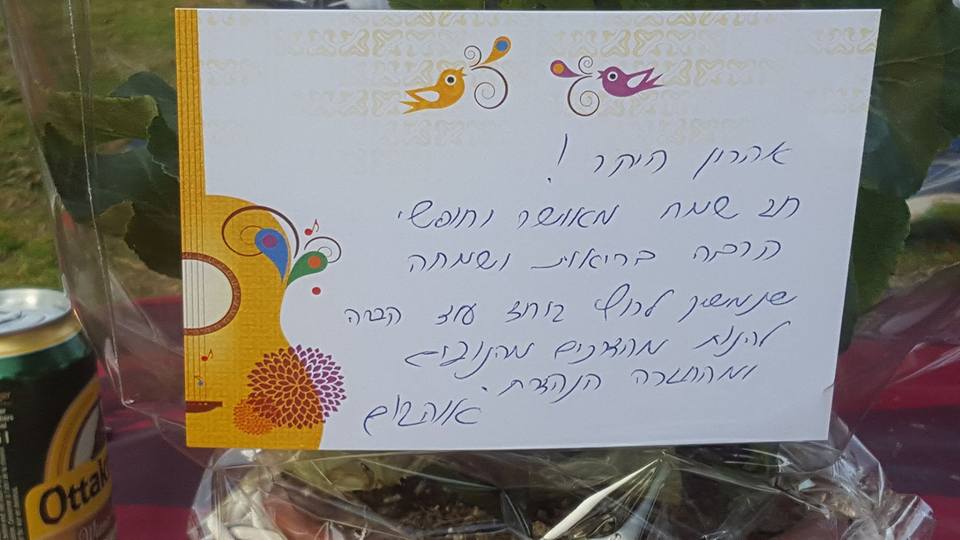 אהרון היקר !
חג שמח מאושר וחופשי
הרבה בריאות ושמחה
שנמשיך לרוץ ביחד עוד הרבה
להנות מהדרכים מהנופים
ומהחברה הנהדרת.
אוהבים
Ottak